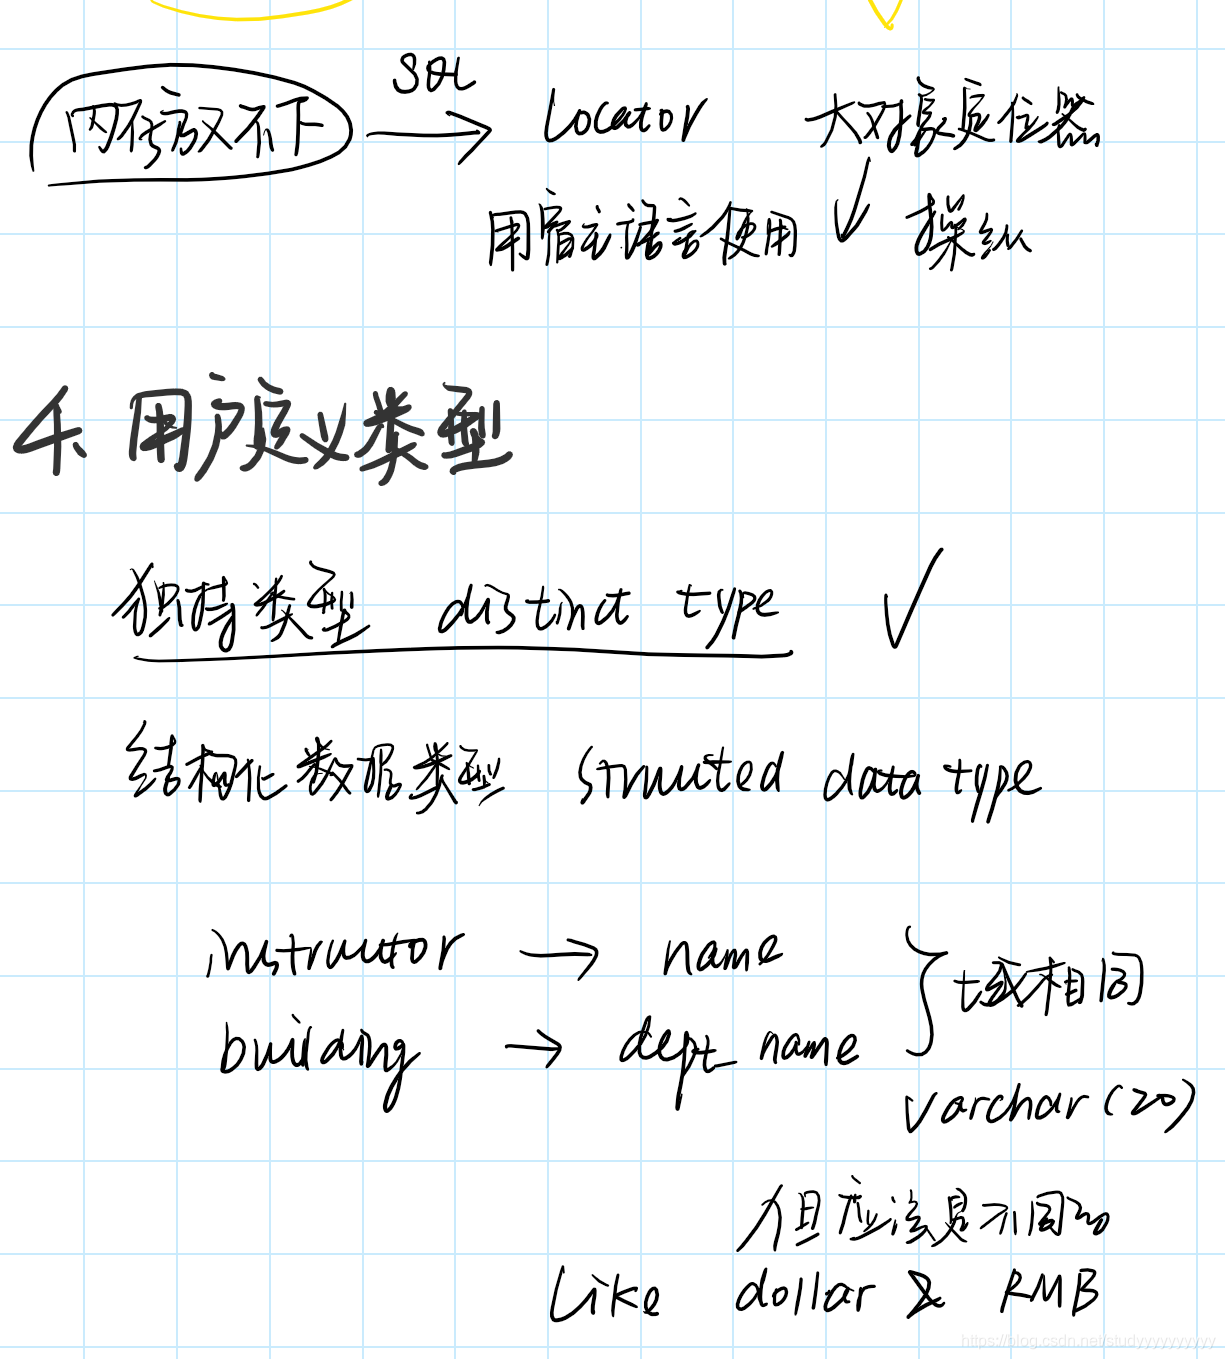 内存放不下 SQL Locator 大对象定位器
用宿主语言使用 操纵
4、用户定义类型
独特类型 distinct type
结构化数据类型 structed data type
instructor → name
building → dept_name
域相同
varchar(20)
但应该是不同的
Like dollar & RMB
https://blog.csdn.net/studyyyyyyyyyy